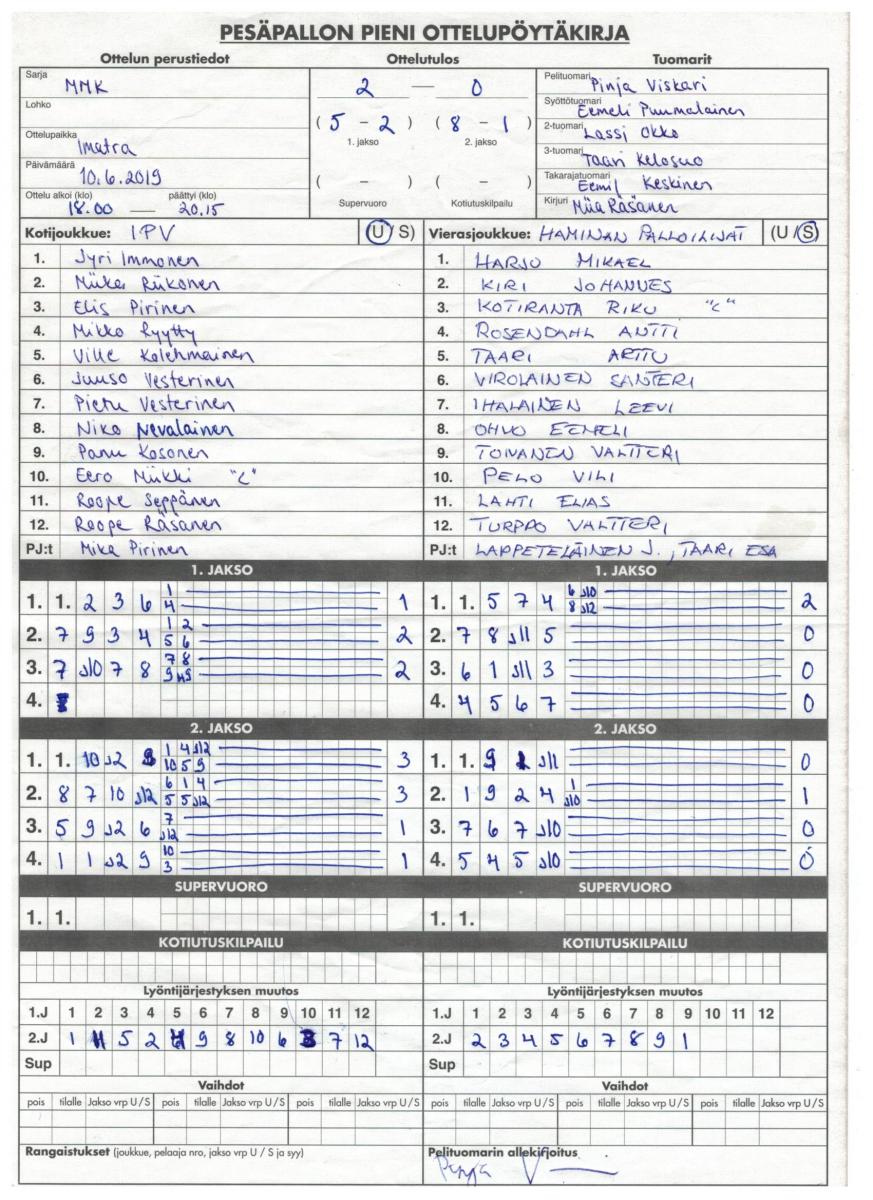 PESÄPALLON PIENI OTTELUPÖYTÄKIRJA
Ottelun perustiedot Ottelutulos Tuomarit
Sarja MMK
Lohko
Ottelupaikka Imatra
Päivämäärä 10.6.2019
Ottelu alkoi (klo) päättyi (klo)
18.00 — 20.15
2 — 0
( 5 – 2 ) ( 8 – 1 )
1. jakso 2. jakso
( – ) ( – )
Supervuoro Kotiutuskilpailu
Pelituomari Pinja Viskari
Syöttötuomari Eemeli Puumalainen
2-tuomari Lassi Okko
3-tuomari Taavi Kelosuo
Takarajatuomari Eemil Keskinen
Kirjuri Miia Räsänen
Kotijoukkue: IPV (U/S)
1. Jyri Immonen
2. Miika Riikonen
3. Elis Pirinen
4. Mikko Ryytty
5. Ville Kolehmainen
6. Juuso Vesterinen
7. Pietu Vesterinen
8. Niko Nevalainen
9. Panu Kosonen
10. Eero Niikki "C"
11. Roope Seppänen
12. Roope Räsänen
PJ:t Mika Pirinen
Vierasjoukkue: HAMINAN PALLOILIJAT (U/S)
1. HARJU MIKAEL
2. KIRI JOHANNES
3. KOTIRANTA RIKU "C"
4. ROSENDAHL ANTTI
5. TAARI ARTTU
6. VIROLAINEN SANTERI
7. IHALAINEN LEEVI
8. OHVO EEMELI
9. TOIVANEN VALTTERI
10. PELO VILI
11. LAHTI ELIAS
12. TURPPO VALTTERI
PJ:t LAPPETELÄINEN J., TAARI ESA
1. JAKSO 1. JAKSO
1. 1. 2 3 6 1 4 1
2. 7 9 3 4 1 2 5 6 2
3. 7 J10 7 8 7 8 9 2
4.
1. 1. 5 7 4 6 J10 8 J12 2
2. 7 8 J11 5 0
3. 6 1 J11 3 0
4. 4 5 6 7 0
2. JAKSO 2. JAKSO
1. 1. 10 J2 1 4 J12 10 5 9 3
2. 8 7 10 J12 6 1 4 5 5 J12 3
3. 5 9 J2 6 7 J12 1
4. 1 1 J2 9 10 3 1
1. 1. 9 J11 0
2. 1 9 2 4 1 J10 1
3. 7 6 7 J10 0
4. 5 4 5 J10 0
SUPERVUORO SUPERVUORO
1. 1. 1. 1.
KOTIUTUSKILPAILU KOTIUTUSKILPAILU
Lyöntijärjestyksen muutos Lyöntijärjestyksen muutos
1.J 1 2 3 4 5 6 7 8 9 10 11 12 1.J 1 2 3 4 5 6 7 8 9 10 11 12
2.J 1 11 5 2 4 9 8 10 6 3 7 12 2.J 2 3 4 5 6 7 8 9 1
Sup Sup
Vaihdot Vaihdot
pois tilalle Jakso vrp U/S pois tilalle Jakso vrp U/S pois tilalle Jakso vrp U/S pois tilalle Jakso vrp U/S pois tilalle Jakso vrp U/S pois tilalle Jakso vrp U/S
Rangaistukset (joukkue, pelaaja nro, jakso vrp U / S ja syy) Pelituomarin allekirjoitus
Pinja V